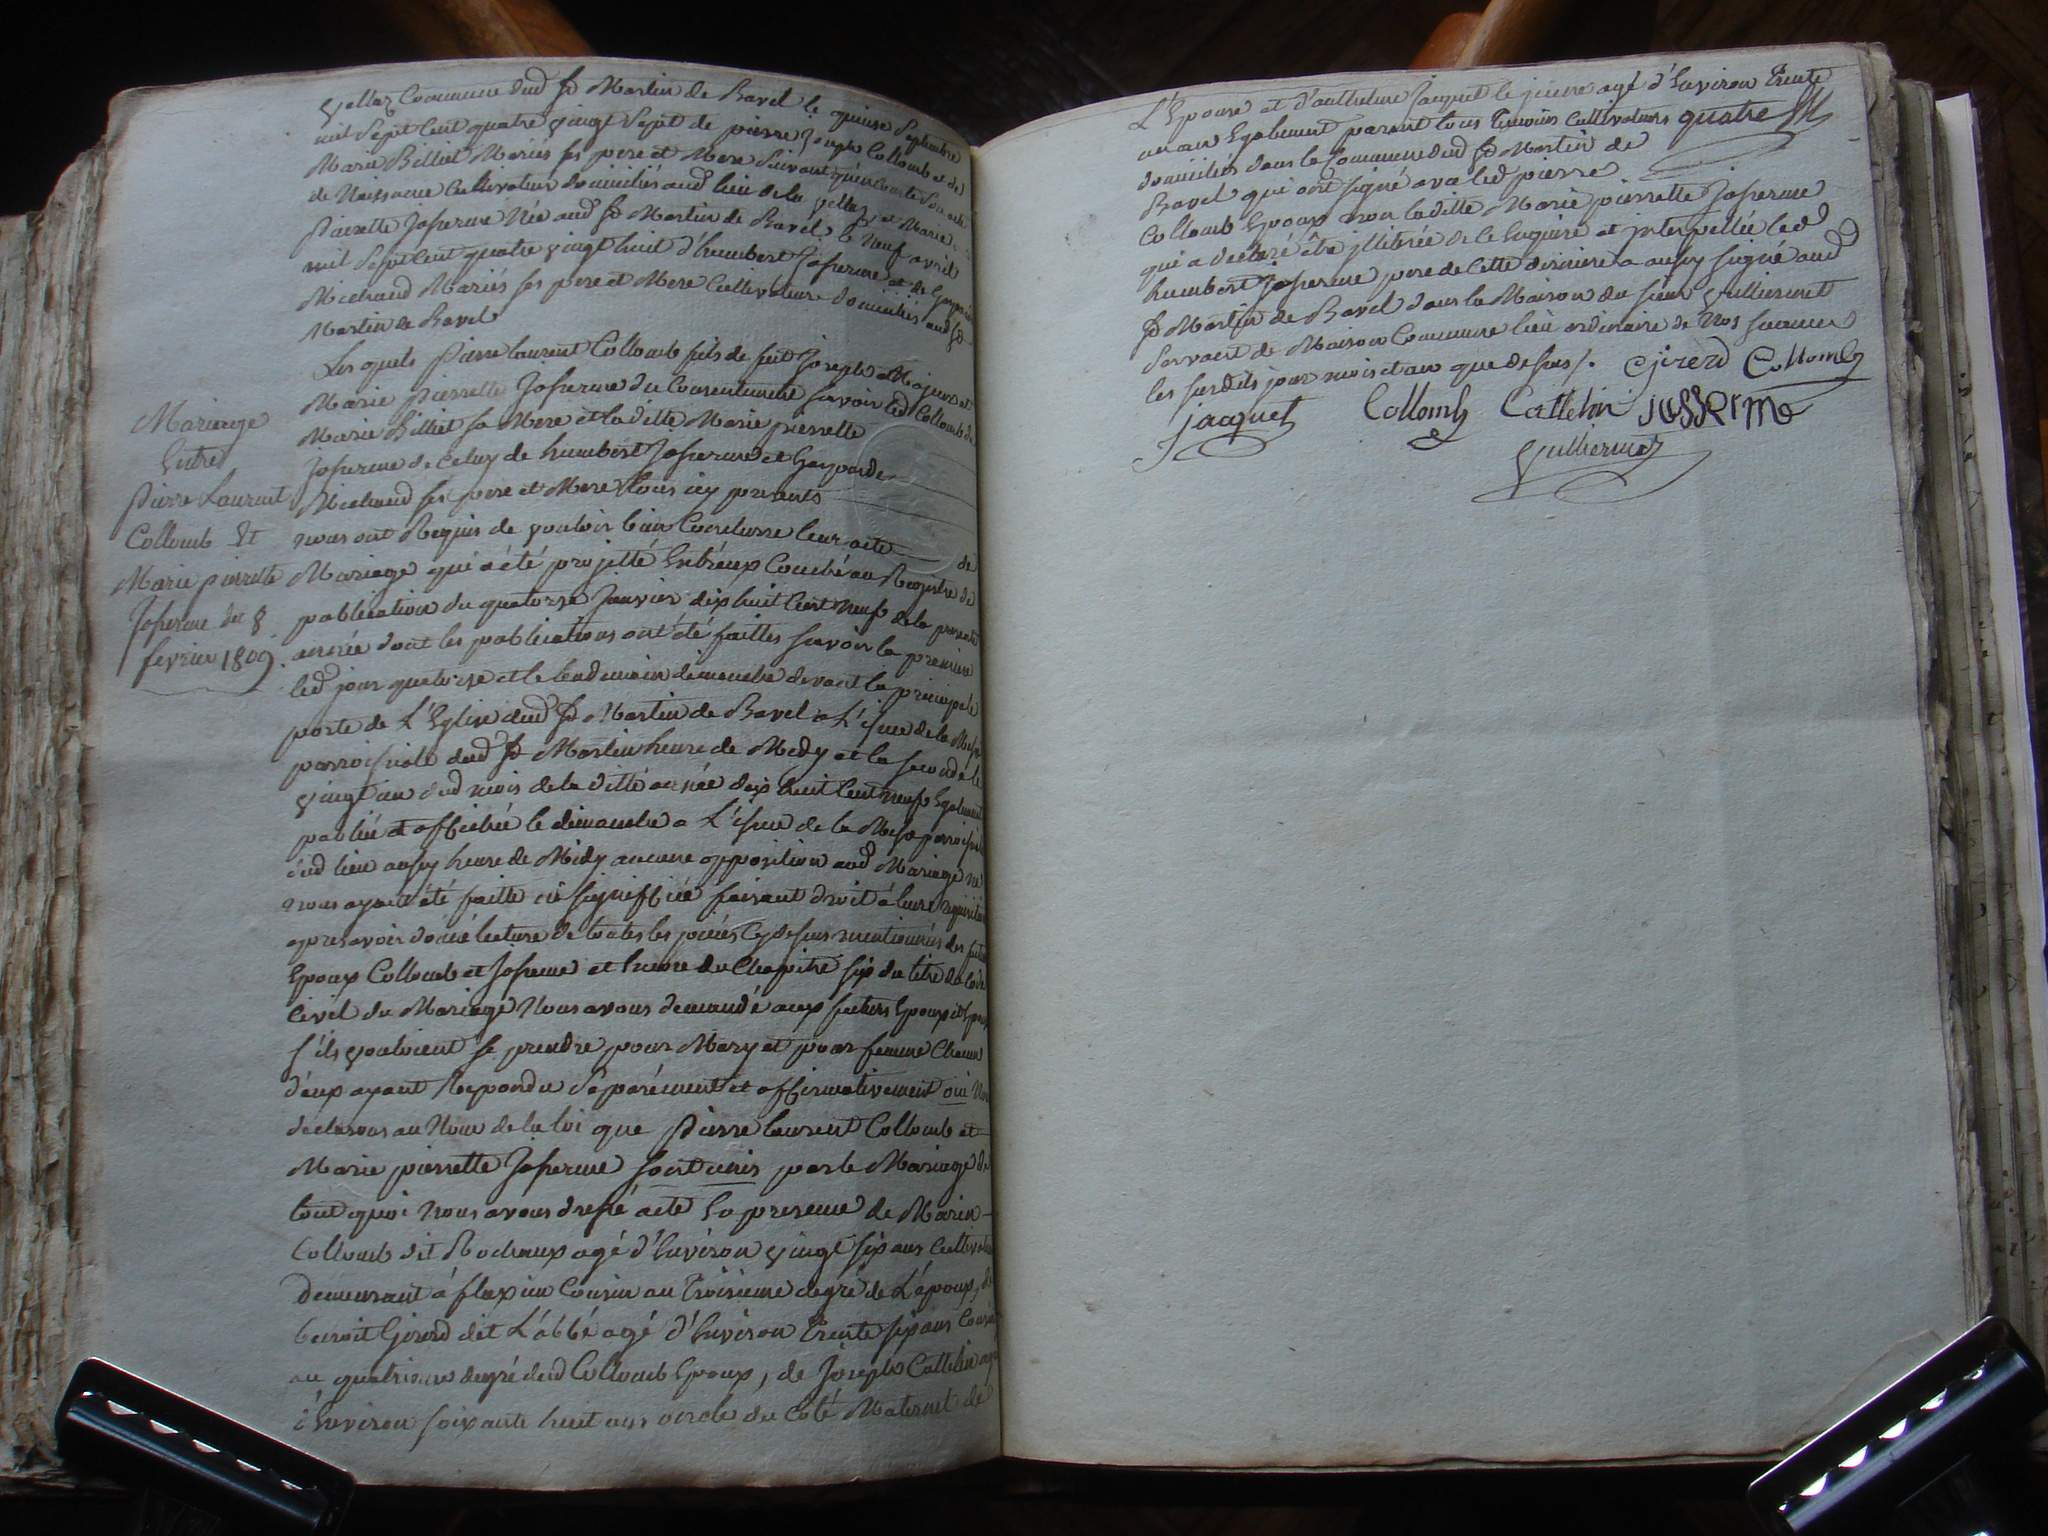 vellaz Commune dud St Martin de Bavel le quinze Septembre
mil Sept Cent quatre vingt Sept de pierre joseph Collomb et de
Marie Billiet Mariés ses pere et Mere Suivant
de Naissance Cultivateur domiciliés aud lieu de la vellaz et Marie
Pierrette Josserme Née aud St Martin de Bavel le Neuf avril
mil Sept Cent quatre vingt huit d'humbert Josserme et de
Michaud Mariés ses pere et Mere Cultivateurs domiciliés aud St
Martin de Bavel
Les quels Pierre laurent Collomb fils de feu Joseph Majeur et
Marie Pierrette Josserme du Consentement savoir led Collomb de
Marie Billiet sa Mere et laditte Marie pierrette
Josserme de Celuy de humbert Josserme et
Michaud ses pere et Mere tous icy presents
nous ont Requis de vouloir bien Conclurre leur acte de
Mariage qui a été projetté Entr'eux Couché au Registre de
publication du quatorze Janvier dix huit Cent Neuf de la presente
année dont les publications ont été faittes savoir la premiere
led jour quatorze et le lendemain dimanche devant la principale
porte de L'Eglise dud St Martin de Bavel a L'issue de la Messe
parroissiale dud St Martin heure de Midy et la seconde le
vingt un dud mois de la ditte année dix huit Cent neuf Egalement
publié et affichée le dimanche a L'issue de la Messe
dud lieu aussy heure de Midy aucune opposition aud Mariage ne
nous ayant été faitte ni signiffiée faisant droit á leur requisition
apres avoir donné lecture de toutes les pieces Cydessus mentionnés des futurs
Epoux Collomb et Josserme et Encore du Chapitre six du titre du Code
Civil du Mariage Nous avons demandé aux futurs Epoux et Epouse
s'ils vouloient se prendre pour Mary et pour femme Chacun
d'eux ayant Repondu Séparément et affirmativement oui Nous
declarons au Nom de la loi que Pierre laurent Collomb et
Marie pierrette Josserme sont unis par le Mariage de
tout quoi Nous avons dressé acte En presence de Marin
Collomb dit Rochaux agé d'Environ vingt six ans Cultivateur
demeurant á flaxin Cousin au Troisieme degré de L'époux, de
benoit Girerd dit L'abbé agé d'Environ Trente six ans Cousin
au quatrieme degré dud Collomb Epoux, de Joseph Cattelin agé
d'Environ soixante huit ans oncle du Coté Maternel de
Mariage
Entre
Pierre Laurent
Collomb Et
Marie pierrette
Josserme du 8
fevrier 1809.
L'Epouse et d'anthelme Jacquet le jeune agé d'Environ Trente
un an Egalement parent tous Temoins Cultivateurs quatre
domiciliés dans la Commune dud St Martin de
Bavel qui ont signé avec led pierre
Collomb Epoux non laditte Marie pierrette Josserme
qui a declaré être illitérée de ce Enquise et interpellée led
humbert Josserme pere de Cette derniere a aussy signé aud
St Martin de Bavel dans la Maison du sieur Vulliermet
Servant de Maison Commune lieu ordinaire de Nos seances
les susdits jour mois et an que dessus. Girerd Collomb
Jacquet Collomb Cattelin jusserme
Vulliermet